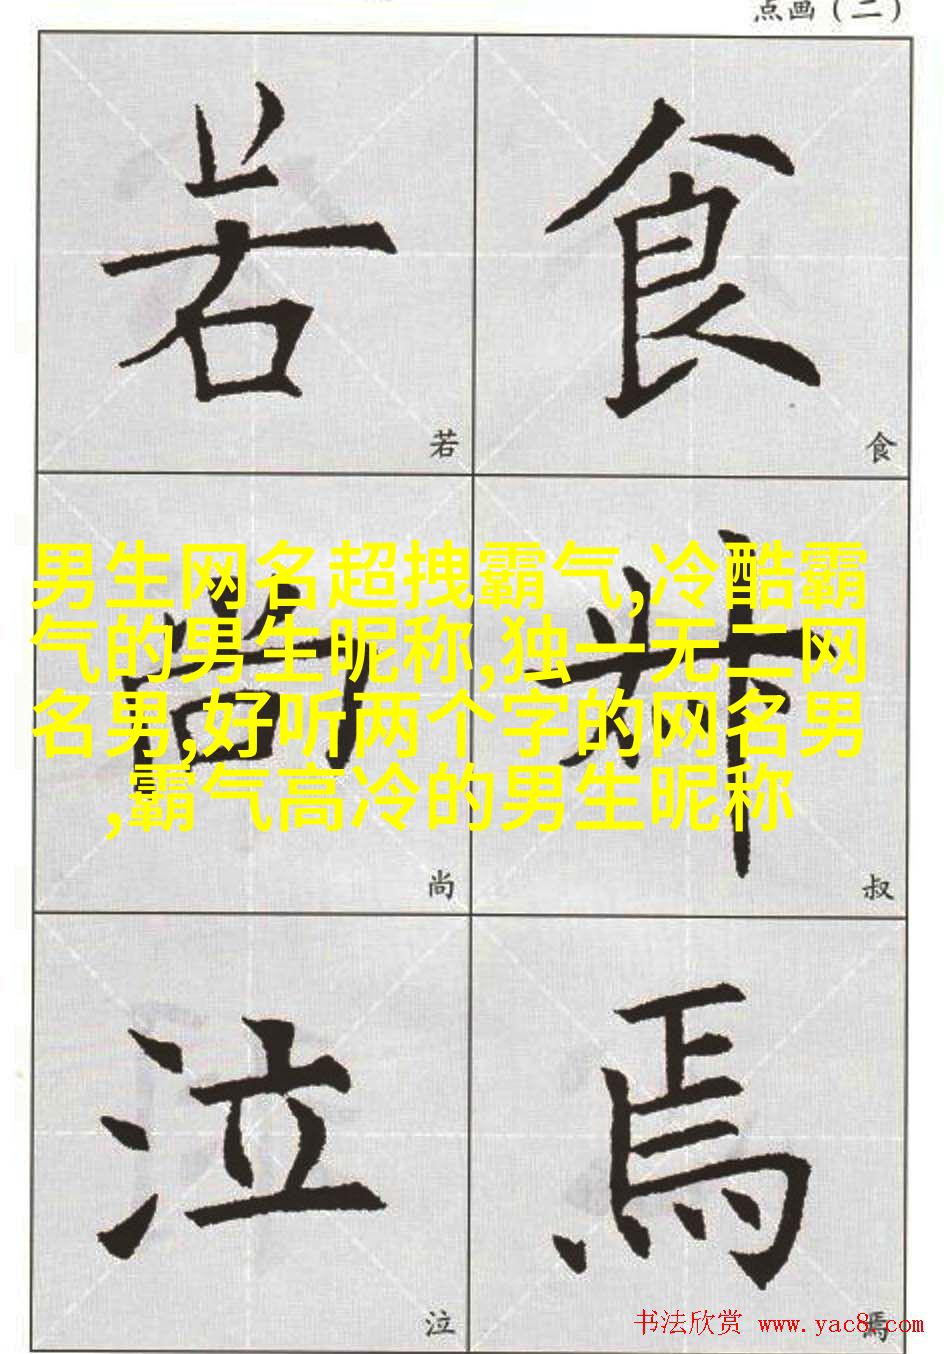 点画（二）
若 食
若 食
男生网名超拽霸气,冷酷霸
气的男生昵称,独一无二网
名男,好听两个字的网名男
,霸气高冷的男生昵称
尚 叔
尚 叔
泣 焉
泣 焉
书法欣赏 www.yac8.com